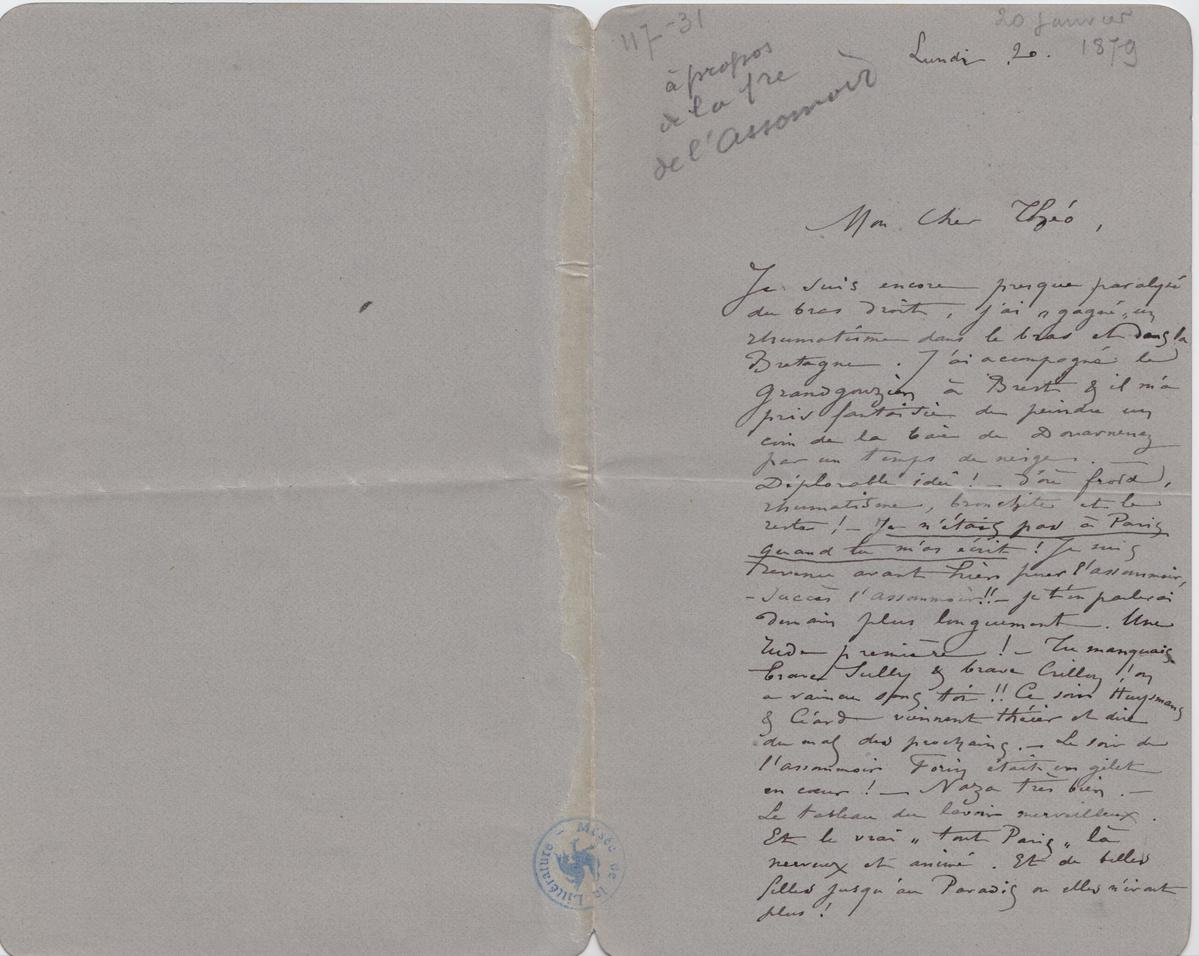 117-31
à propos
de la 1re
de l'Assomoir
20 janvier
1879
Lundi 20.
Mon Cher Théo,
Je suis encore presque paralysé
du bras droit, j'ai "gagné" un
rhumatisme dans le bras et dans la
Bretagne. J'ai acompagné le
Grandgouzien à Brest & il m'a
pris fantaisie de peindre un
coin de la baie de Douarnenez
par un temps de neige.
Déplorable idée ! – D'où froid,
rhumatisme, bronchite et le
reste ! – Je n'étais pas à Paris
quand tu m'as écrit ! Je suis
revenu avant hier pour l'assommoir,
– Succès l'assommoir !! – je t'en parlerai
demain plus longuement. Une
rude première ! – Tu manquais
brave Sully & brave Crillon ! on
a vaincu sans toi !! Ce soir Huysmans
& Céard viennent théier et dire
du mal des prochains. – Le soir de
l'assommoir Forin était en gilet
en cœur ! – Naza très bien. –
Le tableau du lavoir merveilleux.
Et le vrai "tout Paris" là
nerveux et animé. Et de belles
filles jusqu'au Paradis où elles n'iront
plus !
Musée de la Littérature